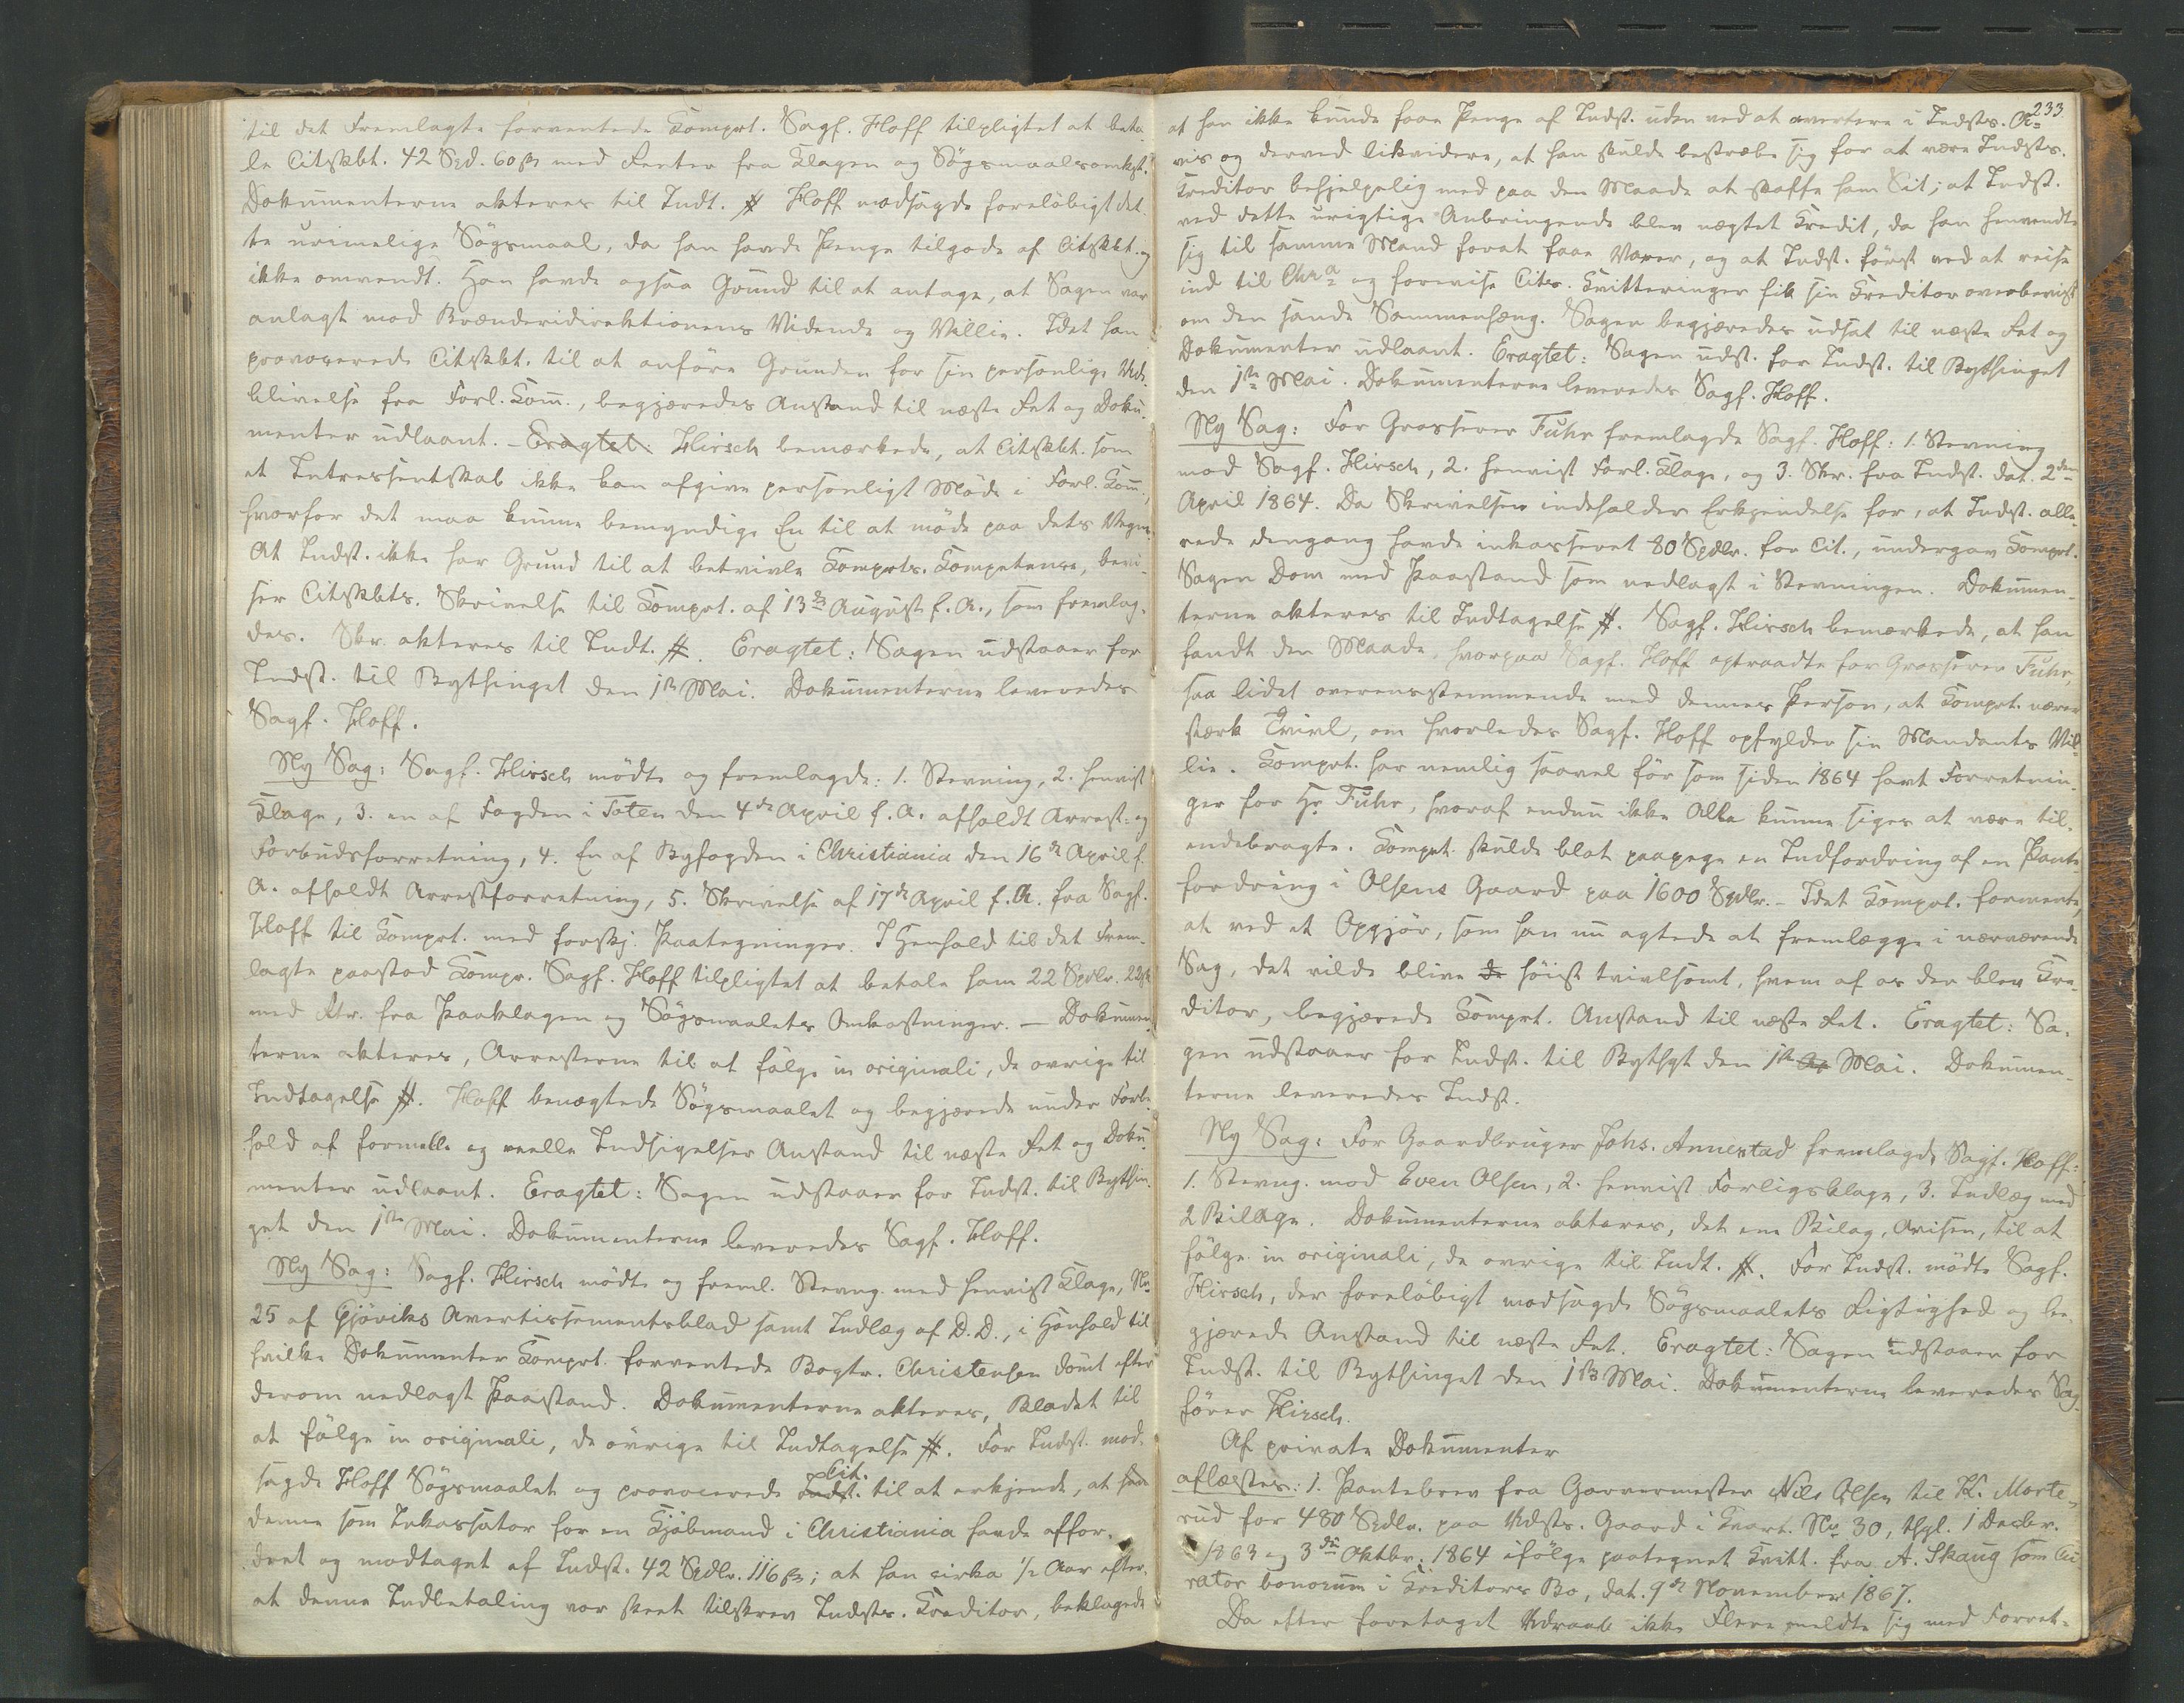 til det Fremlagte forventede Comprt. Sagf. Hoff tilpligtet at beta-
le Citskbt. 42 Spd. 60 ß med Renter fra Klagen og Søgsmaalsomkst.
Dokumenterne akteres til Indt. # Hoff modsagde foreløbigt det-
te urimelige Søgsmaal, da han havde Penge tilgode af Citskbt. og
ikke omvendt. Han havde ogsaa Grund til at antage, at Sagen var
anlagt mod Brænderidirektionens Vidende og Villie. Idet han
provocerede Citskbt. til at anføre Grunden for sin personlige Ude-
blivelse fra Forl. Kom., begjæredes Anstand til næste Ret og Doku-
menter udlaant. – Eragtet: Hirsch bemærkede, at Citskbt. som
et Intressentskab ikke kan afgive personligt Møde i Forl. Kom.,
hvorfor det maa kunne bemyndige En til at møde paa dets Vegne.
At Indst. ikke har Grund til at betvivle Comprts. Kompetence, bevi-
ser Citskbts. Skrivelse til Comprt. af 13de August f. A., som fremlag-
des. Skr. akteres til Indt. #. Eragtet: Sagen udstaaer for
Indst. til Bythinget den 1ste Mai. Dokumenterne leveredes
Sagf. Hoff.
Ny Sag: Sagf. Hirsch mødte og fremlagde: 1. Stevning, 2. henvist
Klage, 3. en af Fogden i Toten den 4de April f. A. afholdt Arrest- og
Forbudsforretning, 4. En af Byfogden i Christiania den 16de April f.
A. afholdt Arrestforretning, 5. Skrivelse af 17de April f. A. fra Sagf.
Hoff til Comprt. med forskj. Paategninger. I Henhold til det Frem-
lagte paastod Compr. Sagf. Hoff tilpligtet at betale ham 22 Spdlr. 22 ß
med Rtr. fra Paaklagen og Søgsmaalets Omkostninger. – Dokumen-
terne akteres, Arresterne til at følge in originali, de øvrige til
Indtagelse #. Hoff benægtede Søgsmaalet og begjærede under Forbe-
hold af formelle og reelle Indsigelser Anstand til næste Ret og Doku-
menter udlaant. Eragtet: Sagen udstaaer for Indst. til Bythin-
get den 1ste Mai. Dokumenterne leveredes Sagf. Hoff.
Ny Sag: Sagf. Hirsch mødte og freml. Stevng. med henvist Klage, No
25 af Gjøviks Avertissementsblad samt Indlæg af D. D., i Henhold til
hvilke Dokumenter Comprt. forventede Bogtr. Christensen dømt efter
derom nedlagt Paastand. Dokumenterne akteres, Bladet til
at følge in originali, de øvrige til Indtagelse #. For Indst. mod-
sagde Hoff Søgsmaalet og provocerede Indst. Cit. til at erkjende, at han
denne som Inkassator for en Kjøbmand i Christiania havde affor-
dret og modtaget af Indst. 42 Spdlr. 116 ß; at han cirka 1/2 Aar efter,
at denne Indbetaling var skeet tilskrev Indsts. Kreditor, beklagede
233.
at han ikke kunde faae Penge af Indst. uden ved at avertere i Indsts. A-
vis og derved likvidere, at han skulde bestræbe sig for at være Indsts.
Kreditor behjelpelig med paa den Maade at skaffe ham Sit; at Indst.
ved dette urigtige Anbringende blev nægtet Kredit, da han henvendte
sig til samme Mand forat faae Varer, og at Indst. først ved at reise
ind til Chra og forevise Cits. Kvitteringer fik sin Kreditor overbevist
om den sande Sammenhæng. Sagen begjæredes udsat til næste Ret og
Dokumenter udlaant. Eragtet: Sagen udst. for Indst. til Bythinget
den 1ste Mai. Dokumenterne leveredes Sagf. Hoff.
Ny Sag: For Grosserer Fuhr fremlagde Sagf. Hoff: 1. Stevning
mod Sagf. Hirsch, 2. henvist Forl. Klage, og 3. Skr. fra Indst. dat. 2den
April 1864. Da Skrivelsen indeholder Erkjendelse for, at Indst. alle-
rede dengang havde inkasseret 80 Spdlr. for Cit., undergav Comprt.
Sagen Dom med Paastand som nedlagt i Stevningen. Dokumen-
terne akteres til Indtagelse #. Sagf. Hirsch bemærkede, at han
fandt den Maade, hvorpaa Sagf. Hoff optraadte for Grosserer Fuhr,
saa lidet overensstemmende med dennes Person, at Comprt. nærer
stærk Tvivl, om hvorledes Sagf. Hoff opfylder sin Mandants Vil-
lie. Comprt. har nemlig saavel før som siden 1864 havt Forretnin-
ger for Hr. Fuhr, hvoraf endnu ikke Alle kunne siges at være til-
endebragte. Comprt. skulde blot paapege en Indfordring af en Pante-
fordring i Olsens Gaard paa 1600 Spdlr. – Idet Comprt. formente,
at ved et Opgjør, som han nu agtede at fremlægge i nærværende
Sag, det vilde blive de høist tvivlsomt, hvem af os der blev Kre-
ditor, begjærede Comprt. Anstand til næste Ret. Eragtet: Sa-
gen udstaaer for Indst. til Bythgt den 1ste Ap Mai. Dokumen-
terne leveredes Indst.
Ny Sag: For Gaardbruger Johs. Annestad fremlagde Sagf. Hoff:
1. Stevng. mod Even Olsen, 2. henvist Forligsklage, 3. Indlæg med
2 Bilage. Dokumenterne akteres, det ene Bilag, Avisen, til at
følge in originali, de øvrige til Indt. #. For Indst. mødte Sagf.
Hirsch, der foreløbigt modsagde Søgsmaalets Rigtighed og be-
gjærede Anstand til næste Ret. Eragtet: Sagen udstaaer for
Indst. til Bythinget den 1ste Mai. Dokumenterne leveredes Sag-
fører Hirsch.
Af private Dokumenter
aflæstes: 1. Pantebrev fra Garvermester Nils Olsen til K. Morte-
rud for 480 Spdlr. paa Udsts. Gaard i Kvart. No 30, thgl. 1 Decbr.
1863 og 3die Oktbr. 1864 ifølge paategnet Kvitt. fra A. Skaug som Cu-
rator bonorum i Kreditors Bo, dat. 9de November 1867.
Da efter foretaget Udraab ikke Flere meldte sig med Forret-